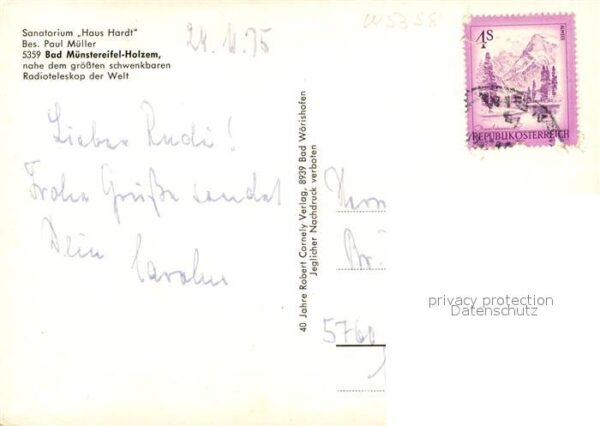 Sanatorium „Haus Hardt"
Bes. Paul Müller
5359 Bad Münstereifel-Holzem,
nahe dem größten schwenkbaren
Radioteleskop der Welt
24.4.75
W5358
4S
ALMSEE
REPUBLIK ÖSTERREICH
Lieber Rudi!
Frohe Grüße sendet
Dein
40 Jahre Robert Cornely Verlag, 8939 Bad Wörishofen
Jeglicher Nachdruck verboten
Herrn
Br.
5760
privacy protection
Datenschutz